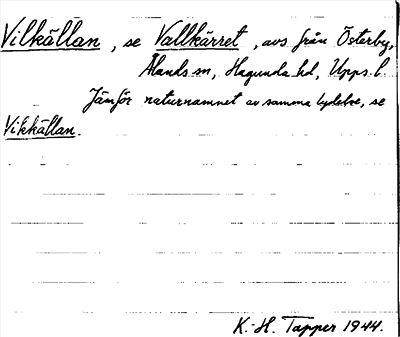 Vilkällan, se Vallkärret, avs från Österby,
Ålands sn, Hagunda hd, Upps. l.
Jämför naturnamnet av samma lydelse, se
Vilkällan.
K.-H. Tapper 1944.